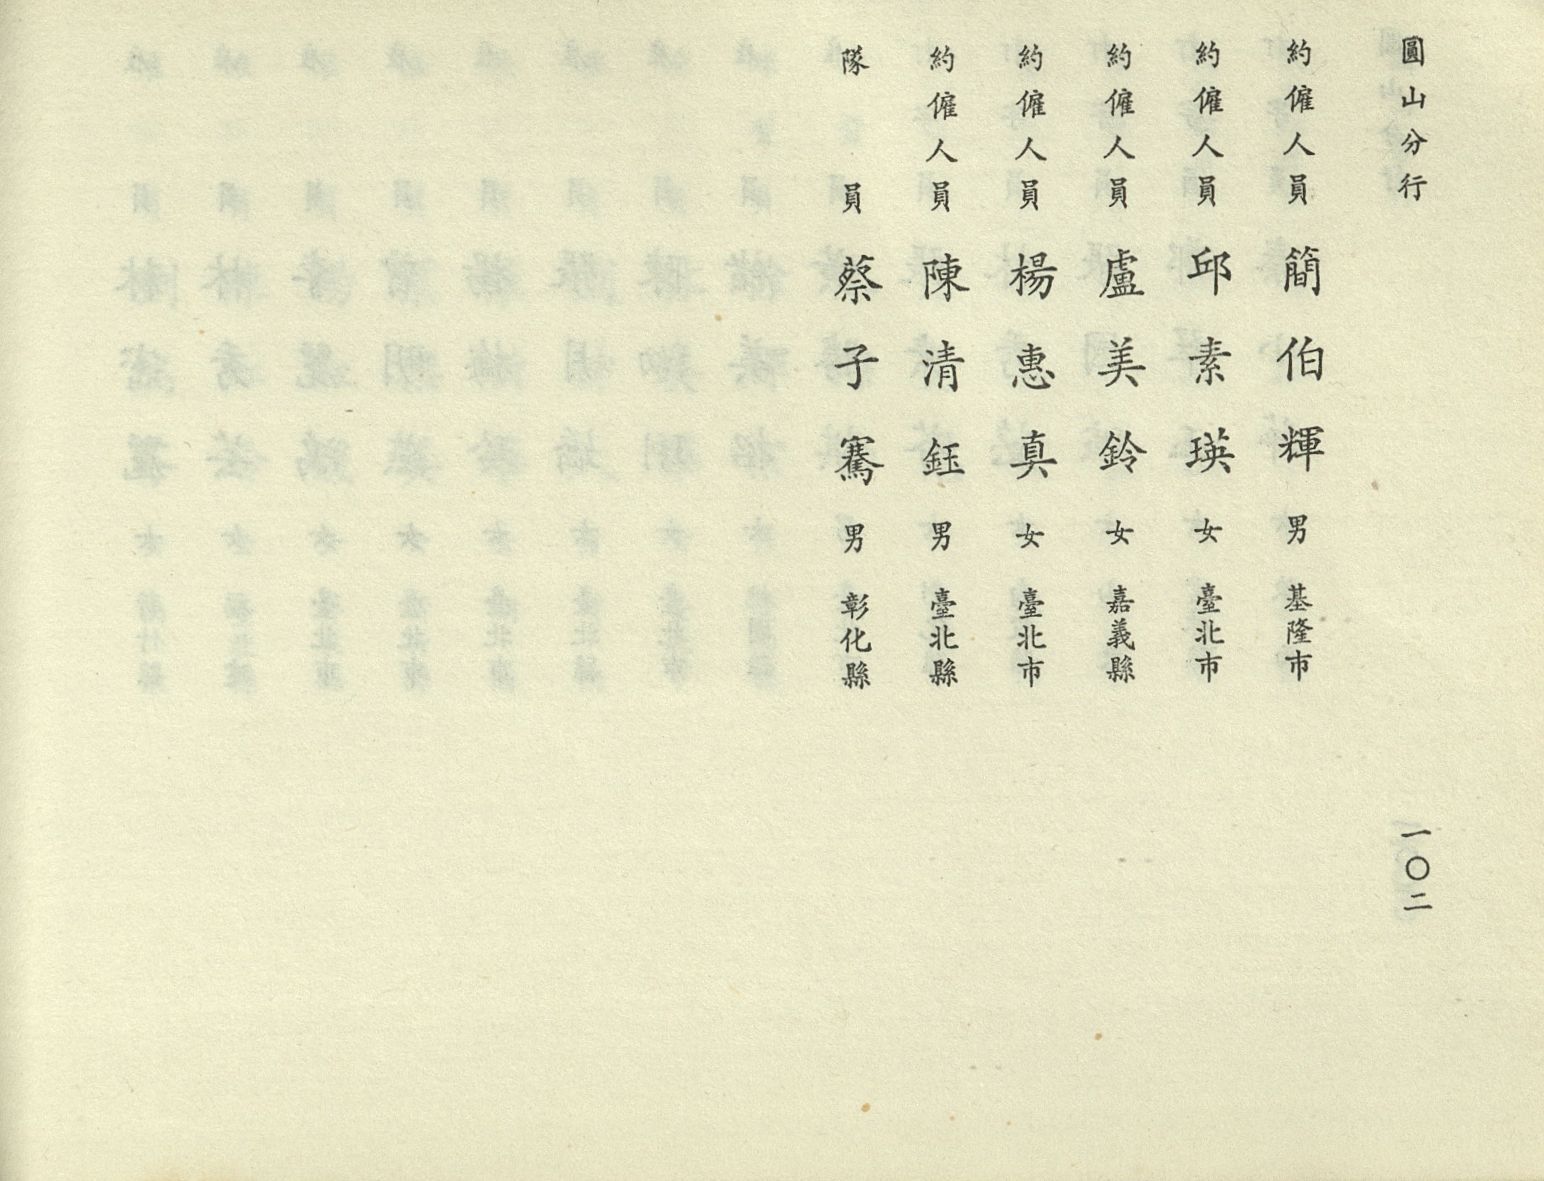 圓山分行
約僱人員 簡伯輝 男 基隆市
約僱人員 邱素瑛 女 臺北市
約僱人員 盧美鈴 女 嘉義縣
約僱人員 楊惠真 女 臺北市
約僱人員 陳清鈺 男 臺北縣
隊員 蔡子騫 男 彰化縣
一〇二